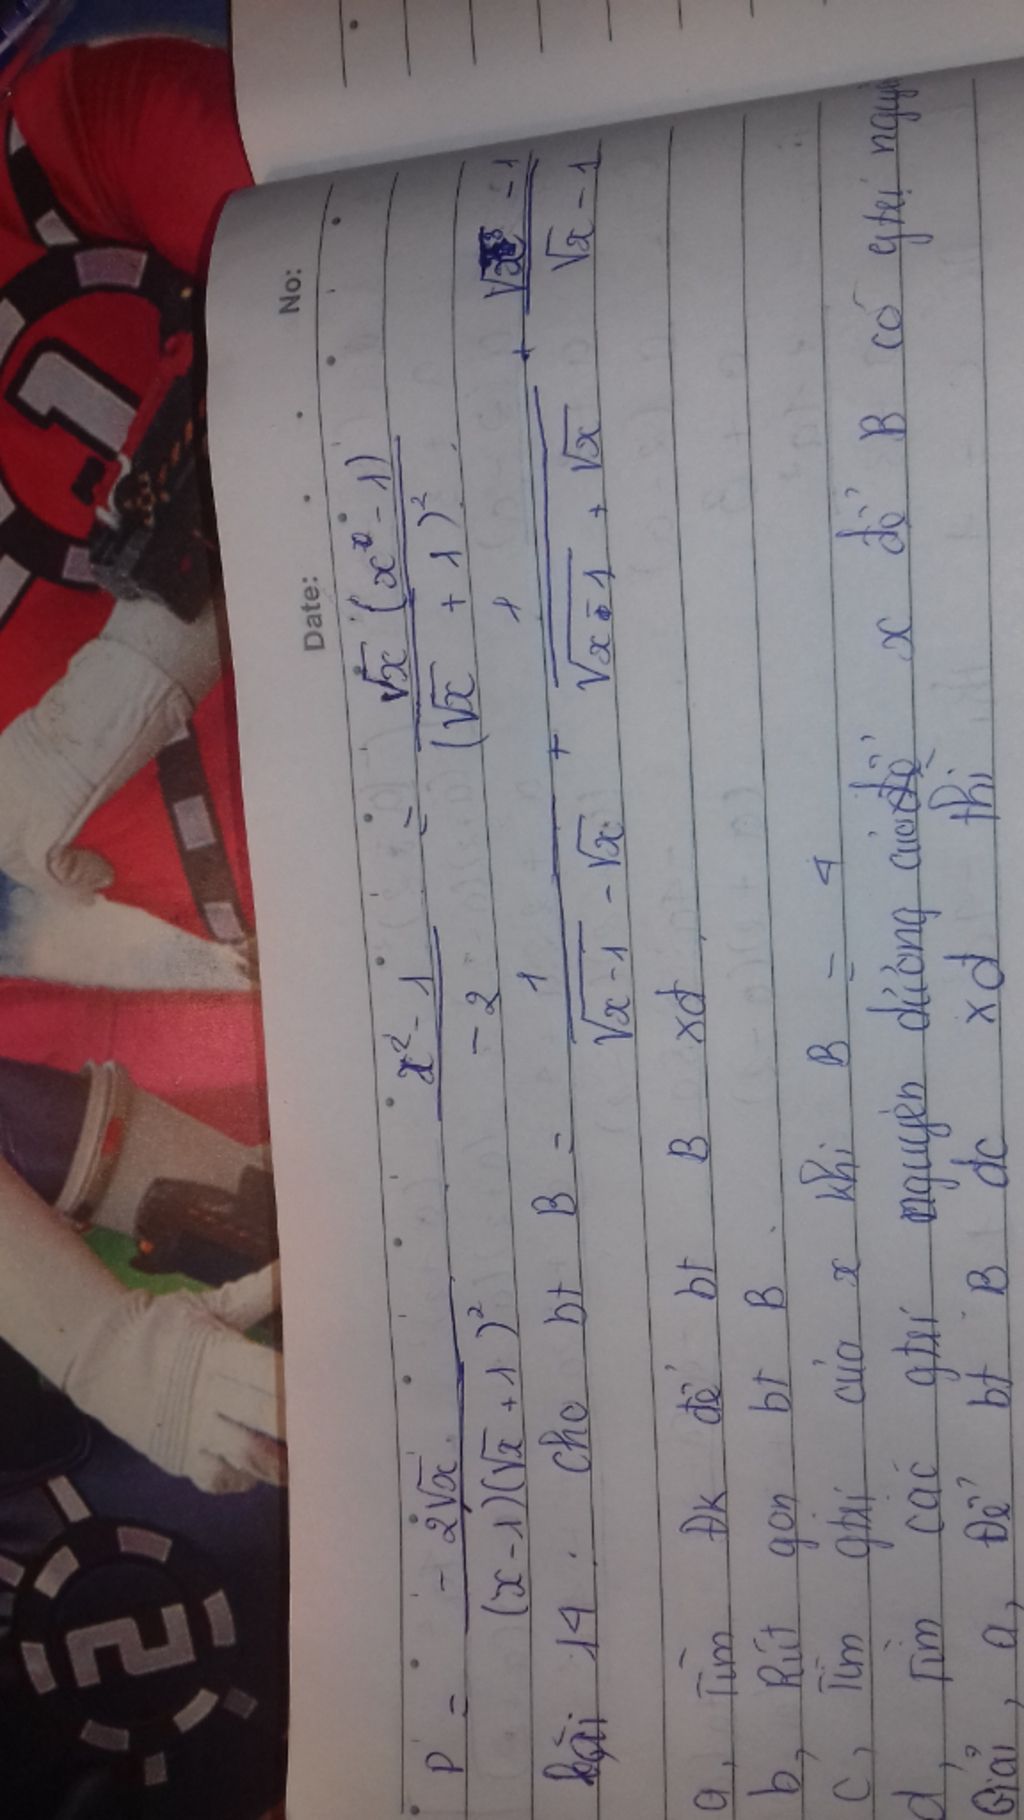 Date: No:
P = - 2√x / (x-1)(√x+1)² · x²-1 / -2 = √x(x-1) / (√x+1)²
bài 14. cho bt B = 1 / √x-1 - √x + 1 / √x-1 + √x + -1 / √x-1
a, Tìm Đk để bt B xđ
b, Rút gọn bt B.
c, Tìm gtrị của x khi B = 4
d, Tìm các gtrị nguyên dương của x để B có gtrị
Giải, a, Để bt B đc xđ thì
1
2